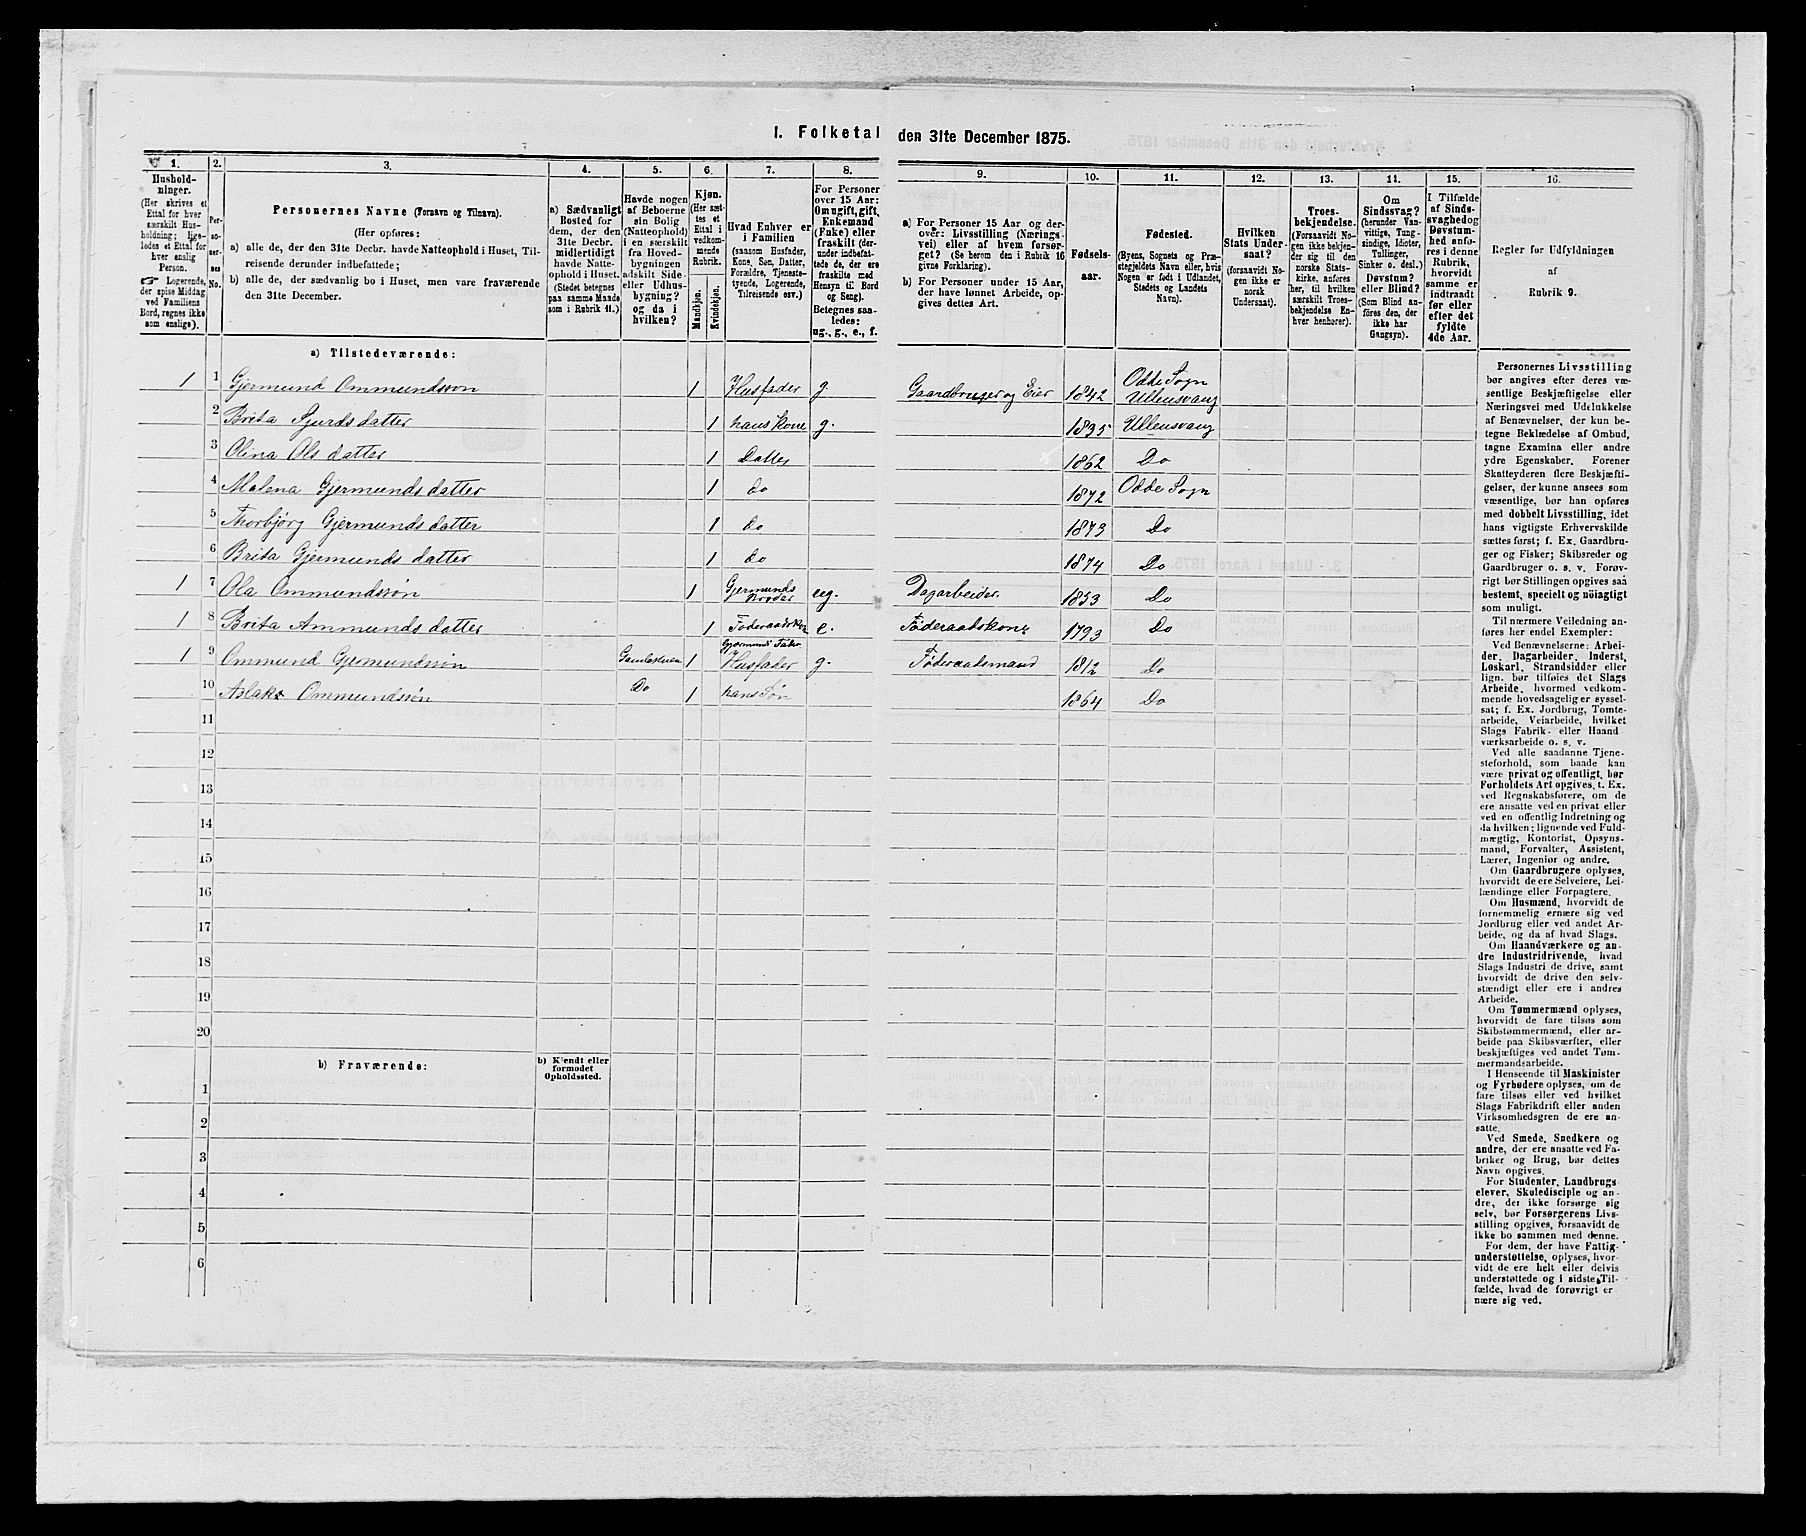 I. Folketal den 31te December 1875.
1. 2. 3. 4. 5. 6. 7. 8. 9. 10. 11. 12. 13. 14. 15. 16.
Hushold-
ninger.
(Her skrives et
Ettal for hver
særskilt Hus-
holdning; lige-
ledes et Ettal for
hver enslig
Person.
☞ Logerende,
der spise Middag
ved Familiens
Bord, regnes ikke
som enslige).
Per-
so-
ner-
nes
No.
Personernes Navne (Fornavn og Tilnavn).
(Her opføres:
a) alle de, der den 31te Decbr. havde Natteophold i Huset, Til-
reisende derunder indbefattede;
b) alle de, der sædvanlig bo i Huset, men vare fraværende
den 31te December.
a) Sædvanligt
Bosted for
dem, der den
31te Decbr.
midlertidigt
havde Natte-
ophold i Huset.
(Stedet betegnes
paa samme Maade
som i Rubrik 11.)
Havde nogen
af Beboerne
sin Bolig
(Natteophold)
i en særskilt
fra Hoved-
bygningen
adskilt Side-
eller Udhus-
bygning?
og da i
hvilken?
Kjøn.
(Her sæt-
tes et
Ettal i
vedkom-
mende
Rubrik.
Mandkjøn.
Kvindekjøn.
Hvad Enhver er
i Familien
(saasom Husfader,
Kone, Søn, Datter,
Forældre, Tjeneste-
tyende, Logerende,
Tilreisende osv.)
For Personer
over 15 Aar:
Om ugift, gift,
Enkemand
(Enke) eller
fraskilt (der-
under indbefat-
tede de, der ere
fraskilte med
Hensyn til Bord
og Seng).
Betegnes saa-
ledes:
ug., g., e., f.
a) For Personer 15 Aar og der-
over: Livsstilling (Nærings-
vei) eller af hvem forsør-
get? (Se herom den i Rubrik 16
givne Forklaring).
b) For Personer under 15 Aar,
der have lønnet Arbeide, op-
gives dettes Art.
Fødsels-
aar.
Fødested.
(Byens, Sognets og Præ-
stegjeldets Navn eller, hvis
Nogen er født i Udlandet,
Stedets og Landets
Navn).
Hvilken
Stats Under-
saat?
(forsaavidt No-
gen ikke er
norsk
Undersaat).
Troes-
bekjendelse.
(Forsaavidt No-
gen ikke bekjen-
der sig til den
norske Stats-
kirke, anføres
her, til hvilken
særskilt Troes-
bekjendelse En-
hver henhører).
Om
Sindssvag?
(herunder Van-
vittige, Tung-
sindige, Idioter,
Tullinger,
Sinker o. desl.)
Døvstum?
eller Blind?
(Som Blind an-
føres den, der
ikke har
Gangsyn).
I Tilfælde
af Sinds-
svaghed og
Døvstum-
hed anfø-
res i denne
Rubrik,
hvorvidt
samme er
indtraadt
før eller
efter det
fyldte
4de Aar.
Regler for Udfyldningen
af
Rubrik 9.
a) Tilstedeværende:
1 1 Gjermund Ommundssøn 1 Husfader g Gaardbruger og Eier 1842 Odde Sogn Ullensvang
2 Brita Sjurdsdatter 1 hans Kone g. 1835 Ullensvang
3 Olina Olsdatter 1 Datter 1862 Do
4 Malena Gjermundsdatter 1 do 1872 Odde Sogn
5 Thorbjørg Gjermundsdatter 1 do 1873 Do
6 Brita Gjermundsdatter 1 do 1874 Do
1 7 Ola Ommundssøn 1 Gjermunds Broder ug. Dagarbeider 1853 Do
1 8 Brita Ammundsdatter 1 Føderaadskone e. Føderaadskone 1793 Do
1 9 Ommund Gjermundssøn 1 Gjermunds Fader Husfader g. Føderaadsmand 1812 Do
10 Aslak Ommundssøn Do 1 hans Søn 1864 Do
11
12
13
14
15
16
17
18
19
20
b) Fraværende:
b) Kjendt eller
formodet
Opholdssted.
1
2
3
4
5
6
Personernes Livsstilling
bør angives efter deres væ-
sentlige Beskjæftigelse eller
Næringsvei med Udelukkelse
af Benævnelser, der kun be-
tegne Beklædelse af Ombud,
tagne Examina eller andre
ydre Egenskaber. Forener
Skatteyderen flere Beskjæfti-
gelser, der kunne ansees som
væsentlige, bør han opføres
med dobbelt Livsstilling, idet
hans vigtigste Erhvervskilde
sættes først; f. Ex. Gaardbru-
ger og Fisker; Skibsreder og
Gaardbruger o. s. v. Forøv-
rigt bør Stillingen opgives saa
bestemt, specielt og nöiagtigt
som muligt.
Til nærmere Veiledning an-
føres her endel Exempler:
Ved Benævnelserne: Arbei-
der, Dagarbeider, Inderst,
Løskarl, Strandsidder eller
lign. bør tilføies det Slags
Arbeide, hvormed vedkom-
mende hovedsagelig er syssel-
sat; f. Ex. Jordbrug, Tomte-
arbeide, Veiarbeide, hvilket
Slags Fabrik- eller Haand
værksarbeide o. s. v.
Ved alle saadanne Tjene-
steforhold, som baade kan
være privat og offentligt, bør
Forholdets Art opgives, t. Ex.
ved Regnskabsførere, om de
ere ansatte ved en privat eller
ved en offentlig Indretning og
da hvilken; lignende ved Fuld-
mægtig, Kontorist, Opsyns-
mand, Forvalter, Assistent,
Lærer, Ingeniør og andre.
Om Gaardbrugere oplyses,
hvorvidt de ere Selveiere, Lei-
lændinge eller Forpagtere.
Om Husmænd, hvorvidt de
fornemmelig ernære sig ved
Jordbrug eller ved andet Ar-
beide, og da af hvad Slags.
Om Haandværkere og an-
dre Industridrivende, hvad
Slags Industri de drive, samt
hvorvidt de drive den selv-
stændigt eller ere i andres
Arbeide.
Om Tømmermænd oplyses,
hvorvidt de fare tilsøs som
Skibstømmermænd, eller ar-
beide paa Skibsværfter, eller
beskjæftiges ved andet Tøm-
mermandsarbeide.
I Henseende til Maskinister
og Fyrbødere oplyses, om de
fare tilsøs eller ved hvilket
Slags Fabrikdrift eller anden
Virksomhedsgren de ere an-
satte.
Ved Smede, Snedkere og
andre, der ere ansatte ved Fa-
briker og Brug, bør dettes
Navn opgives.
For Studenter, Landbrugs
elever, Skoledisciple og an-
dre, der ikke forsørge sig
selv, bør Forsørgerens Livs-
stilling opgives, forsaavidt de
ikke bo sammen med denne.
For dem, der have Fattig-
understøttelse, oplyses, hvor-
vidt de ere helt eller delvis
understøttede og i sidste Til-
fælde, hvad de forøvrigt er
nære sig ved.